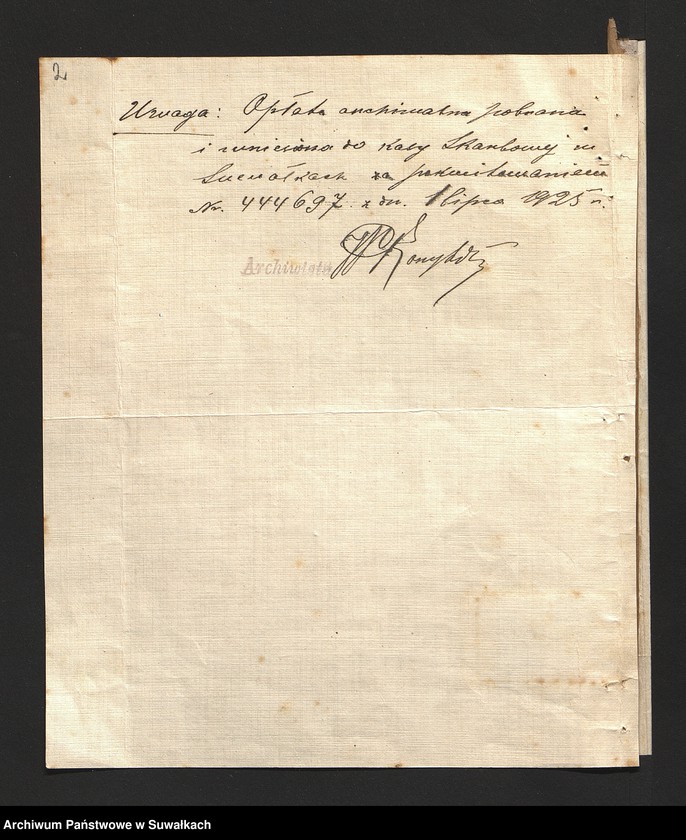 2
Uwaga: Opłata archiwalna pobrana
i wniesiona do Kasy Skarbowej w
Suwałkach za pokwitowaniem
Nr. 444697 z dn. 1 lipca 1925 r.
Archiwista
Archiwum Państwowe w Suwałkach